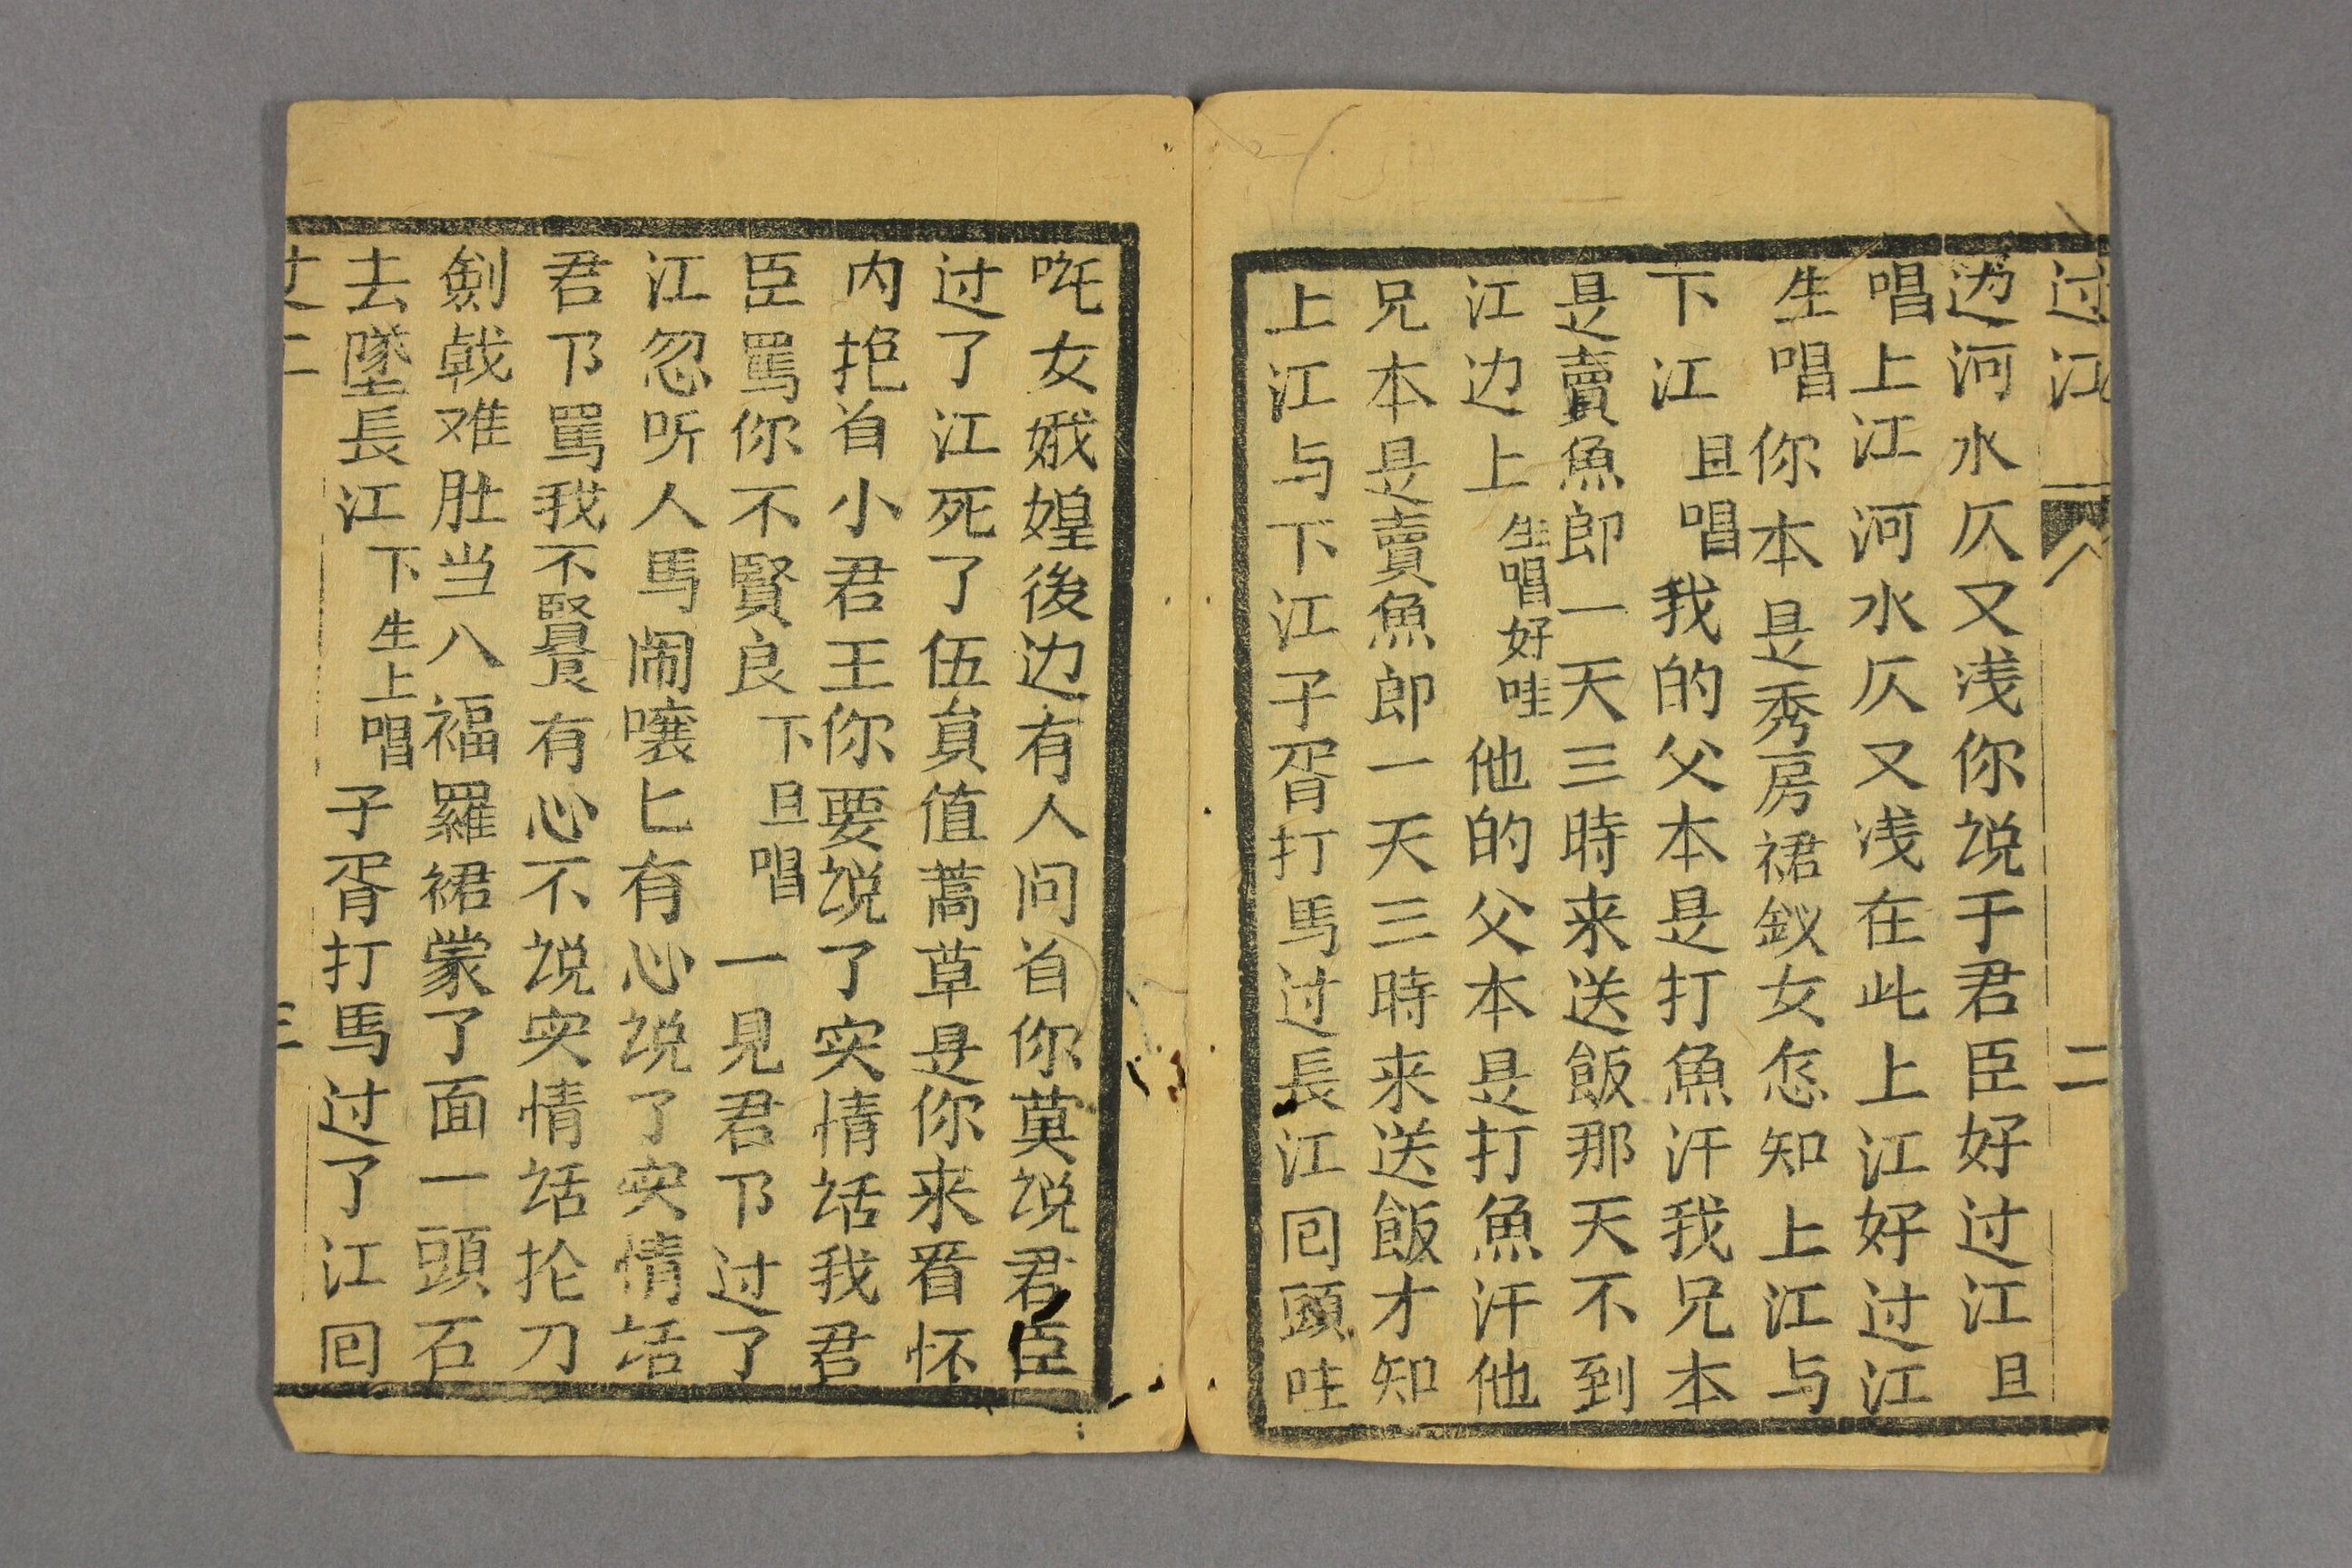 过江 二
边河水仄又浅你説于君臣好过江旦
唱上江河水仄又浅在此上江好过江
生唱你本是秀房裙釵女怎知上江与
下江旦唱我的父本是打魚汗我兄本
是賣魚郎一天三時来送飯那天不到
江边上生唱好哇他的父本是打魚汗他
兄本是賣魚郎一天三時来送飯才知
上江与下江子胥打馬过長江囬頭哇
咤女娥媓後边有人问首你莫説君臣
过了江死了伍員值蒿草是你来看怀
内抱首小君王你要説了实情話我君
臣罵你不賢良下旦唱一見君卩过了
江忽听人馬闹嚷匕有心説了实情話
君卩罵我不賢良有心不説实情話抡刀
劍戟难肚当八福羅裙蒙了面一頭石
去墜長江下生上唱子胥打馬过了江囬
过江 三